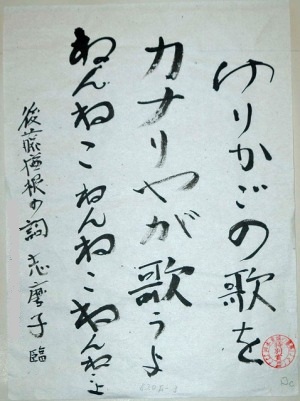 ゆりかごの歌を
カナリヤが歌うよ
ねんねこねんねこねんねこよ
後藤楢根の詞 志磨子臨